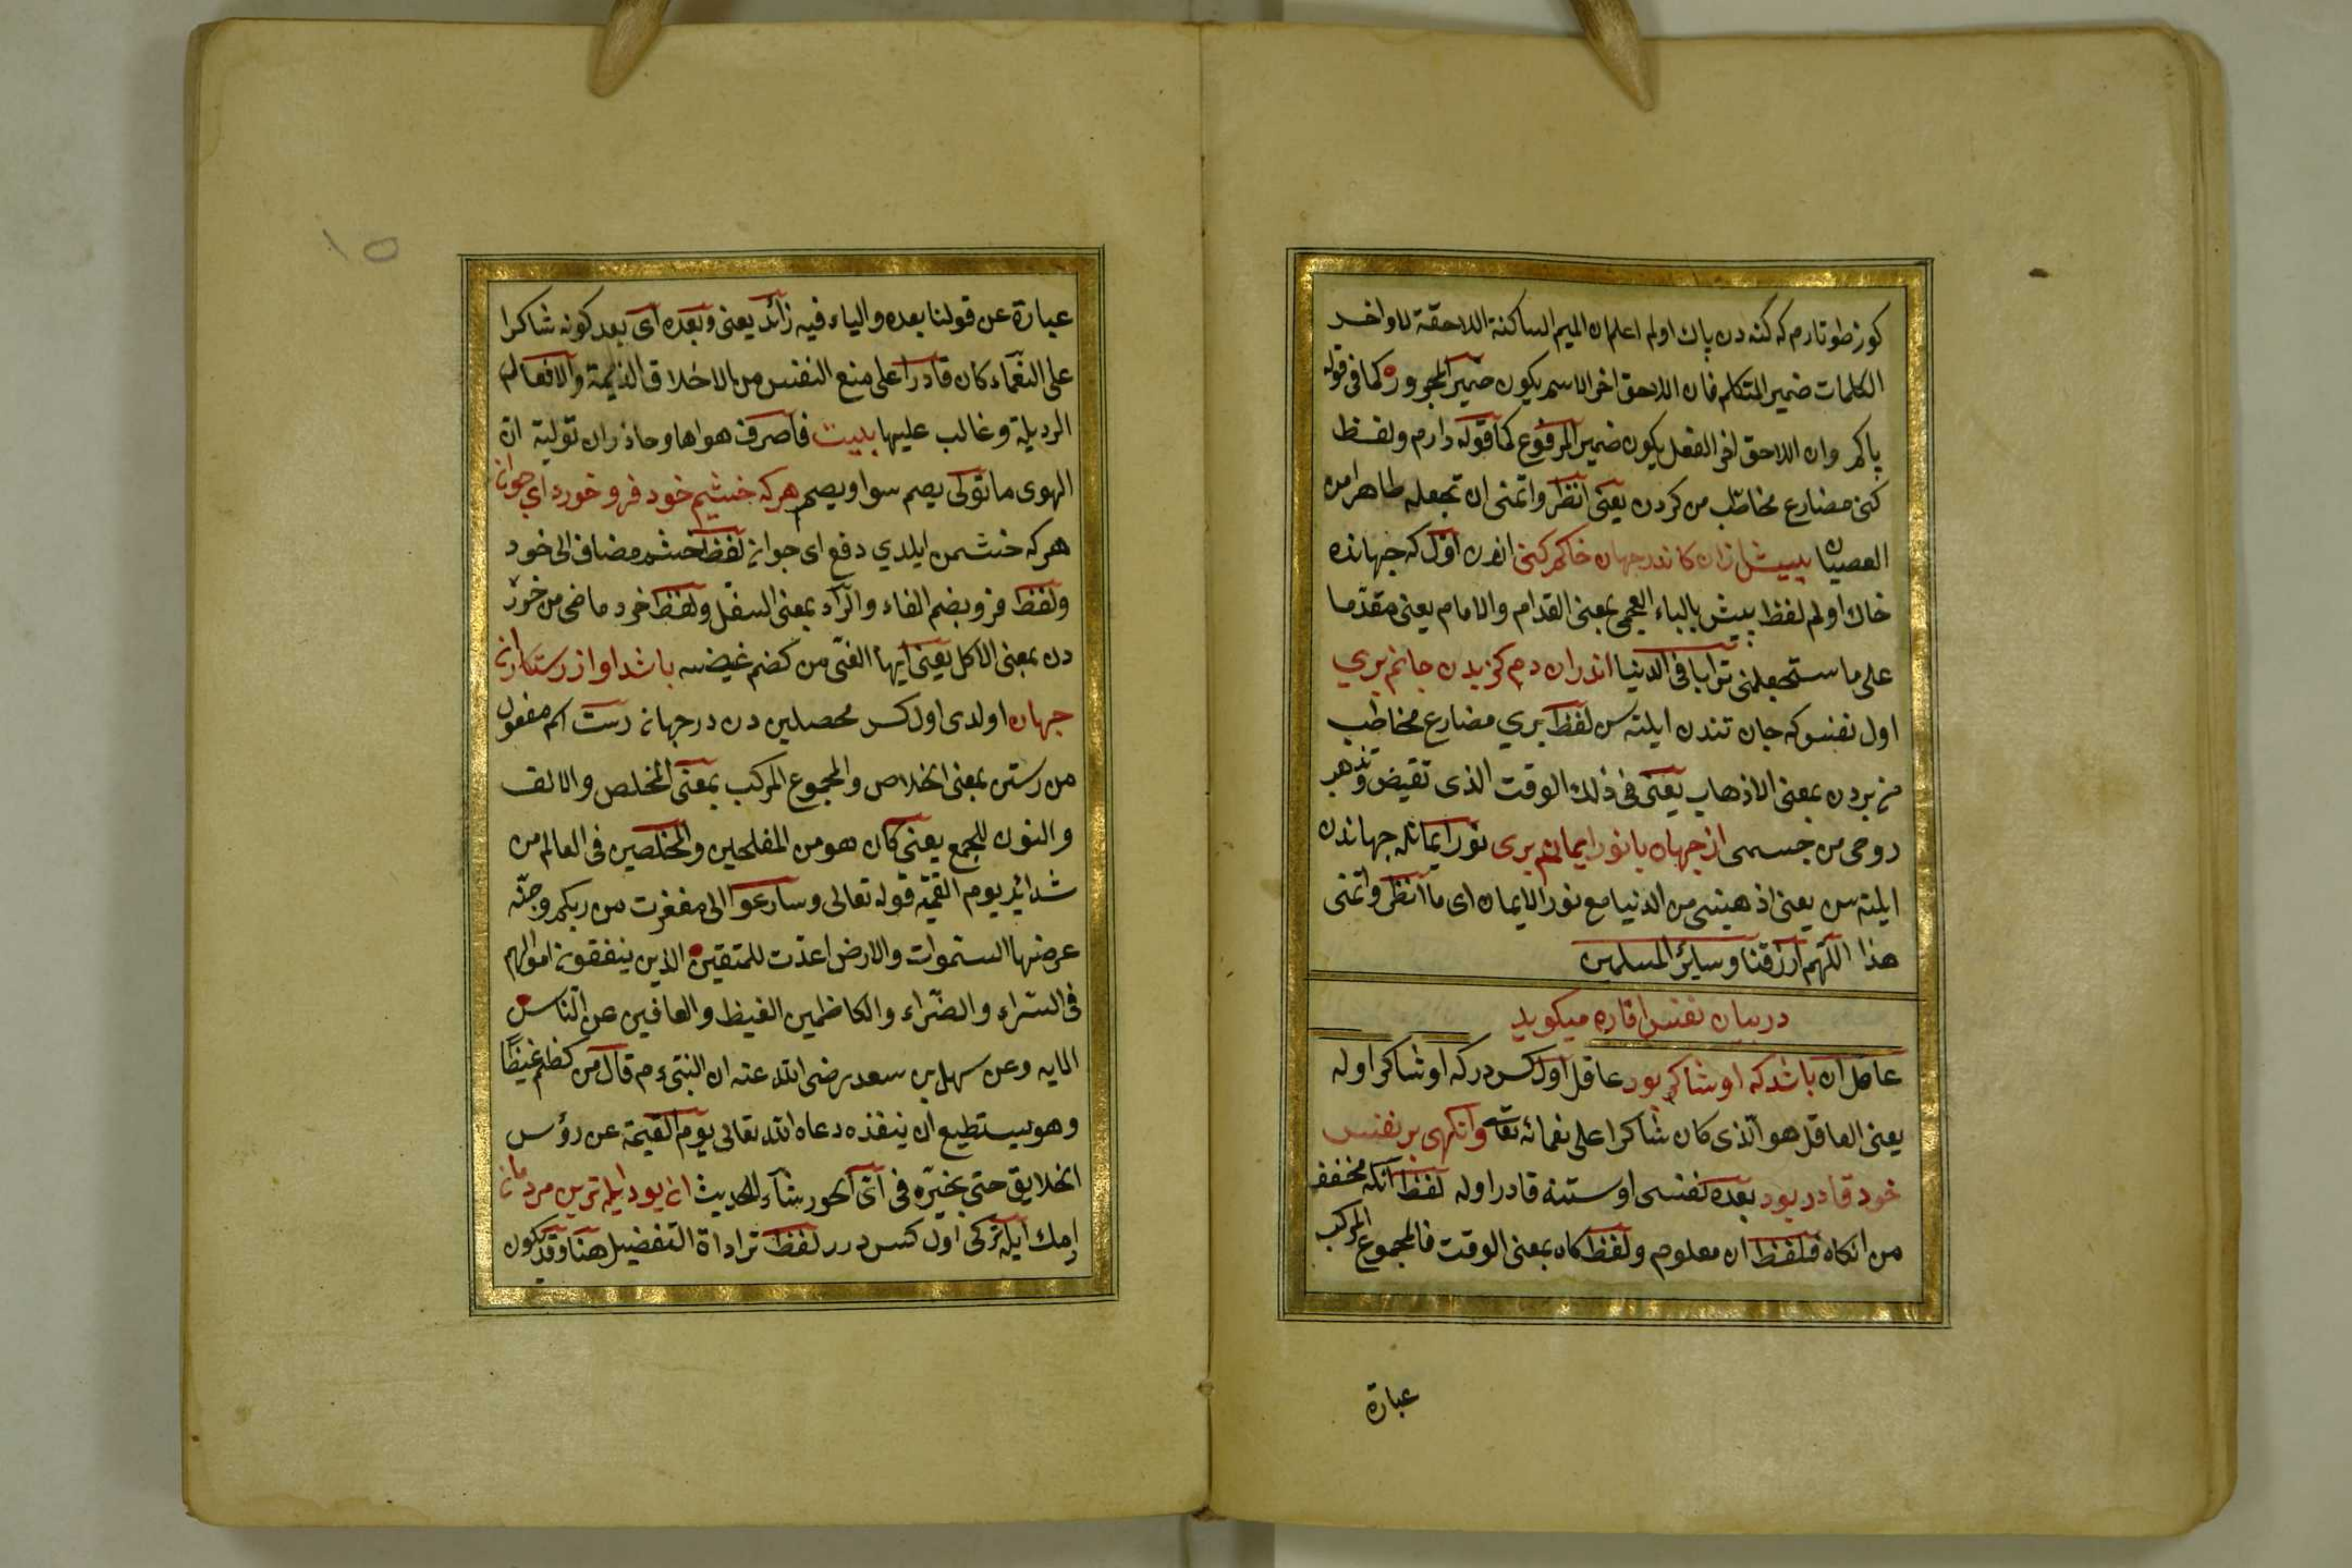 كوز طوتارم كه كنه دن پاك اولم اعلم ان الميم الساكنة اللاحقة لاواخر
الكلمات ضمير المتكلم فان اللاحق اخر الاسم يكون ضمير المجرور كما فى قوله
پاكم وان اللاحق اخر الفعل يكون ضمير المرفوع كما قوله دارم ولفظ
كنى مضارع مخاطب من كردن يعنى انظر واتمنى ان تجعله طاهرا من
العصيان پيش ازان كاندر جهان خاكم كنى اندن اول كه جهانده
خاك اولم لفظ پيش بالباء العجمى بمعنى القدام والامام يعنى مقدما
على ما ستجعلنى ترابا فى الدنيا اندران دم كز بدن جانم برى
اول نفس كه جان تندن ايلته سن لفظ برى مضارع مخاطب
من بردن بمعنى الاذهاب يعنى فى ذلك الوقت الذى تقيض وتذهب
روحى من جسمى از جهان با نور ايمانم برى نور ايمانله جهاندن
ايلته سن يعنى اذهبتنى من الدنيا مع نور الايمان اى ما انظر واتمنى
هذا اللهم ارزقنا وسائر المسلمين
در بيان نفس اماره ميكويد
عاقل ان باشد كه او شاكر بود عاقل اول كس دركه او شاكر اوله
يعنى العاقل هو الذى كان شاكرا على نعمائه تعالى وانكهى بر نفس
خود قادر بود بعده نفسى اوستنه قادر اوله لفظ انكه مخفف
من انكاه فلفظ ان معلوم ولفظ كاه بمعنى الوقت فالمجموع المركب
عبارة
١٥
عبارة عن قولنا بعده والياء فيه زائد يعنى وبعده اى بعد كونه شاكرا
على النعماء كان قادرا على منع النفس من الاخلاق الذميمة والافعال
الرديلة وغالب عليها بيت فاصرف هواها وحاذر ان توليه ان
الهوى ما تولى يصم سوا ويصم هركه خشم خود فرو خورد اى جوان
هركه خشمن ايلدي دفع اى جوان لفظ خشم مضاف الى خود
ولفظ فرو بضم الفاء والراء بمعنى السفل ولفظ خرد ماضى من خور
دن بمعنى الاكل يعنى ايها الفتى من كضم غيضه باشد او از رستكاران
جهان اولدى اول كس محصلين دن در جهان رست اسم مفعول
من رستن بمعنى الخلاص والمجموع المركب بمعنى المخلص والالف
والنون للجمع يعنى كان هو من المفلحين والمخلصين فى العالم من
شدائد يوم القيمة قوله تعالى وسارعوا الى مغفرت من ربكم وجنة
عرضها السموات والارض اعدت للمتقين الذين ينفقون اموالهم
فى السراء والضراء والكاظمين الغيظ والعافين عن الناس
الايه وعن سهل بن سعد رضى الله عنه ان النبى ء م قال من كظم غيظا
وهو يستطيع ان ينفذه دعاه الله تعالى يوم القيمة عن رؤس
الخلايق حتى يخيره فى اى الحور شاء الحديث ان بود ابله ترين مردمان
ادمك ابله تركى اول كس درر لفظ ترا اداة التفضيل هنا وقد يكون